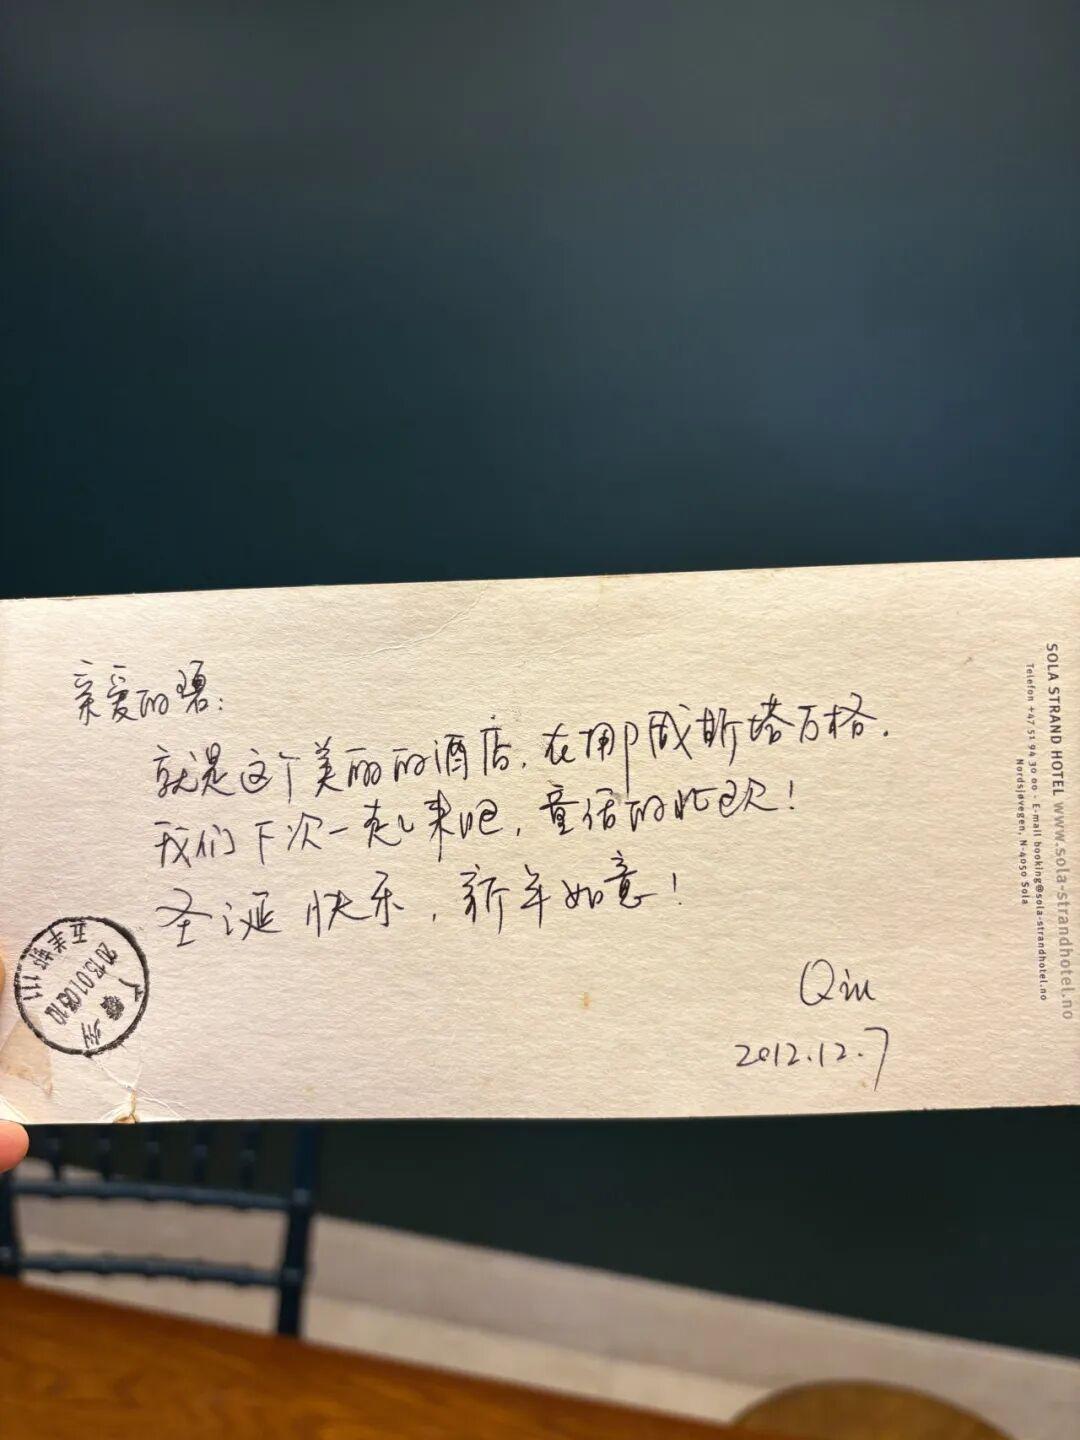 亲爱的碧：
就是这个美丽的酒店，在挪威斯塔万格.
我们下次一起来吧，童话的北欧！
圣诞快乐，新年如意！
Qiu
2012.12.7
SOLA STRAND HOTEL www.sola-strandhotel.no
Telefon +47 51 94 30 00 - E-mail booking@sola-strandhotel.no
Nordsjøvegen, N-4050 Sola
广州
2013.01.03.10
五羊邨 111